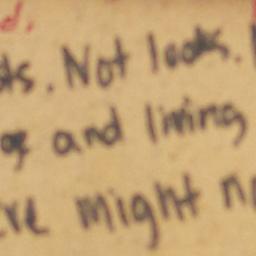 d.
ts. Not looks.
and living
ere might n